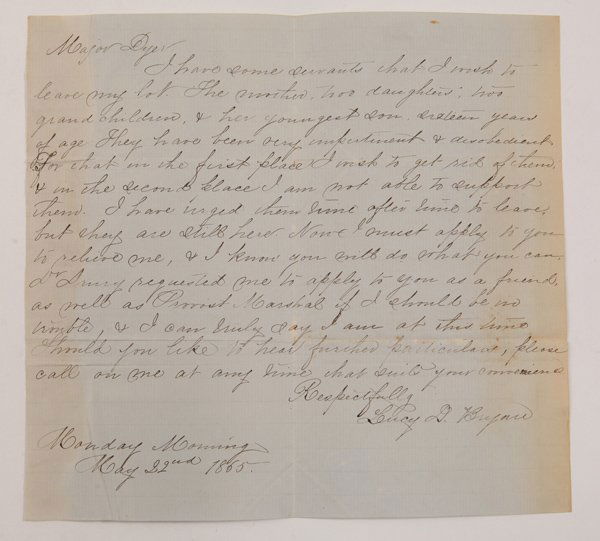 Major Dyer
I have some servants that I wish to
leave my lot. The mother, two daughters, two
grand children, & her youngest son sixteen years
of age. They have been very impertinent & disobedient
For that in the first place I wish to get rid of them,
& in the second place I am not able to support
them. I have urged them time after time to leave,
but they are still here. Now I must apply to you
to relieve me, & I know you will do what you can.
Dr Drury requested me to apply to you as a friend,
as well as Provost Marshal if I should be in
trouble, & I can truly say I am at this time
Should you like to hear further particulars, please
call on me at any time that suits your convenience
Respectfully
Lucy D.
Monday Morning
May 22nd 1865.